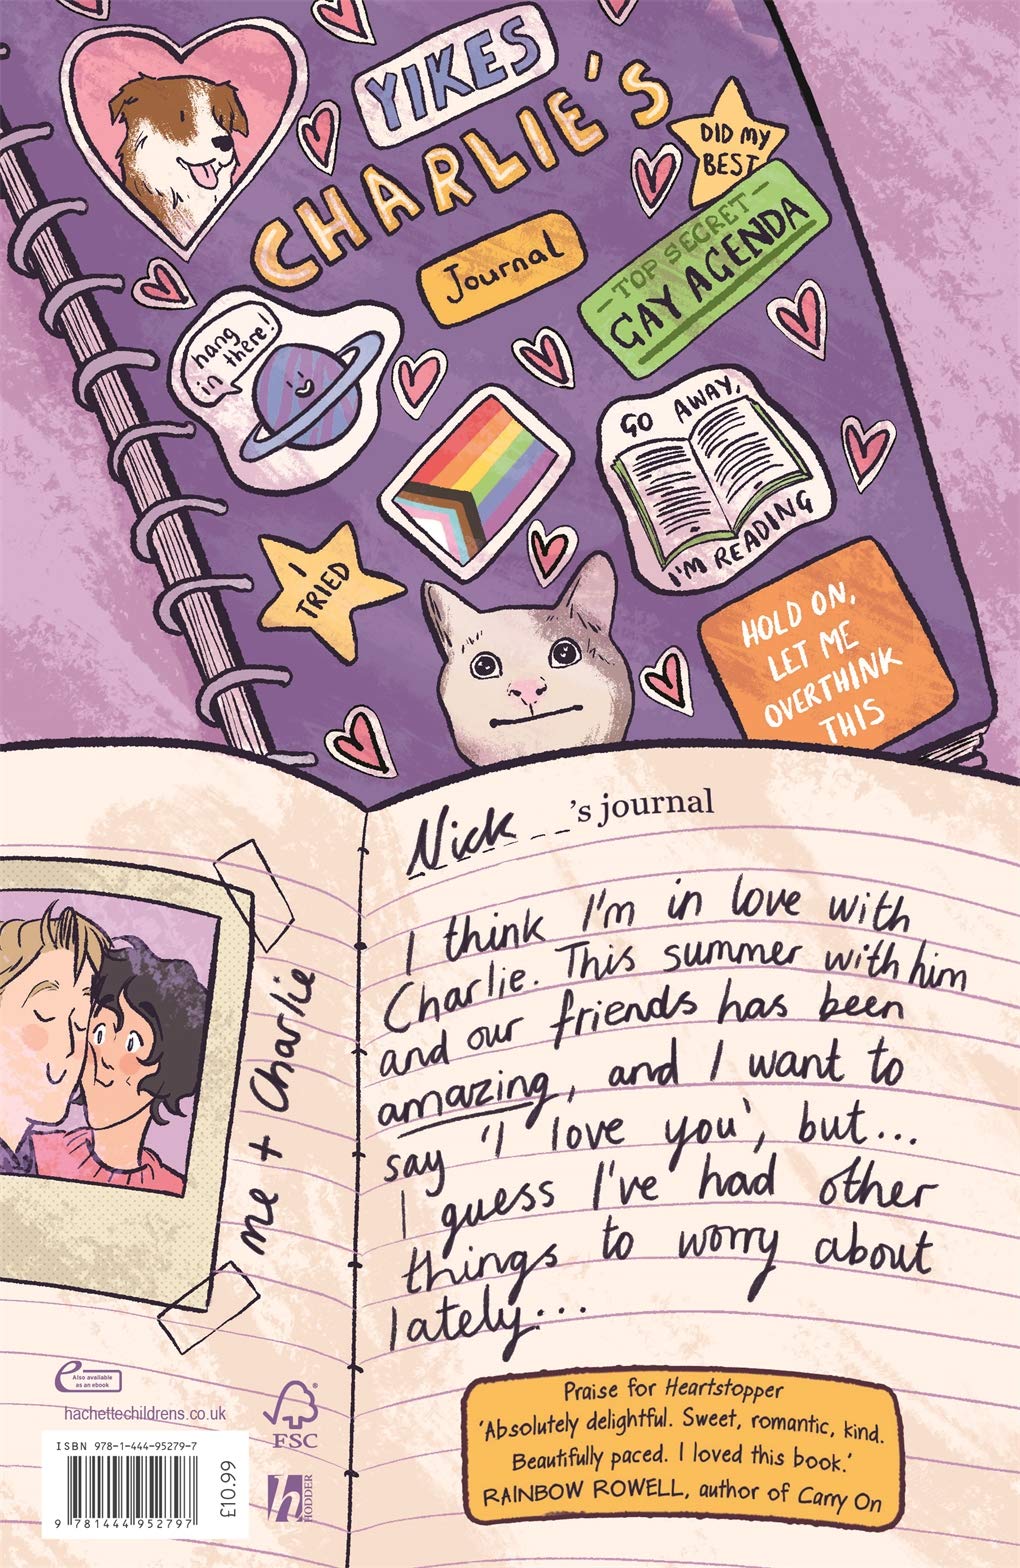 YIKES
CHARLIE'S
DID MY
BEST
Journal
-TOP SECRET-
GAY AGENDA
hang
in there!
GO AWAY,
I'M READING
I
TRIED
HOLD ON,
LET ME
OVERTHINK
THIS
Nick__'s journal
I think I'm in love with
Charlie. This summer with him
and our friends has been
amazing, and I want to
say 'I love you', but...
I guess I've had other
things to worry about
lately...
me + Charlie
Praise for Heartstopper
'Absolutely delightful. Sweet, romantic, kind.
Beautifully paced. I loved this book.'
RAINBOW ROWELL, author of Carry On
e
Also available
as an ebook
hachettechildrens.co.uk
FSC
®
ISBN 978-1-444-95279-7
9 781444 952797
£10.99
h
HODDER